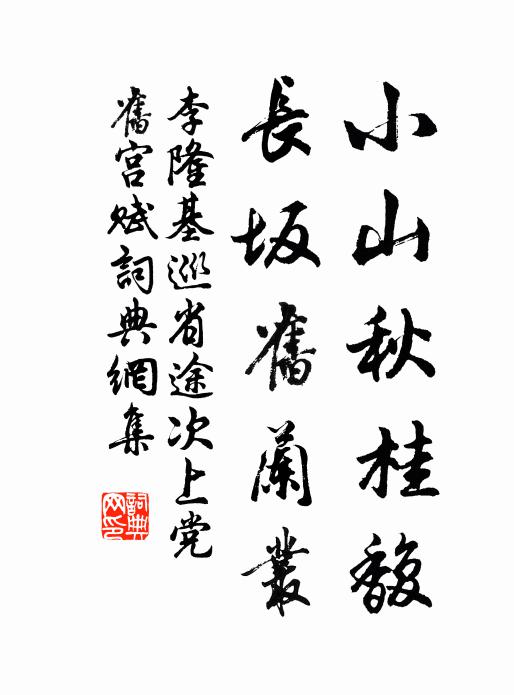 小山秋桂馥
長坂舊蘭叢
李隆基巡省途次上党
舊宮賦詞典網集
詞典
网印